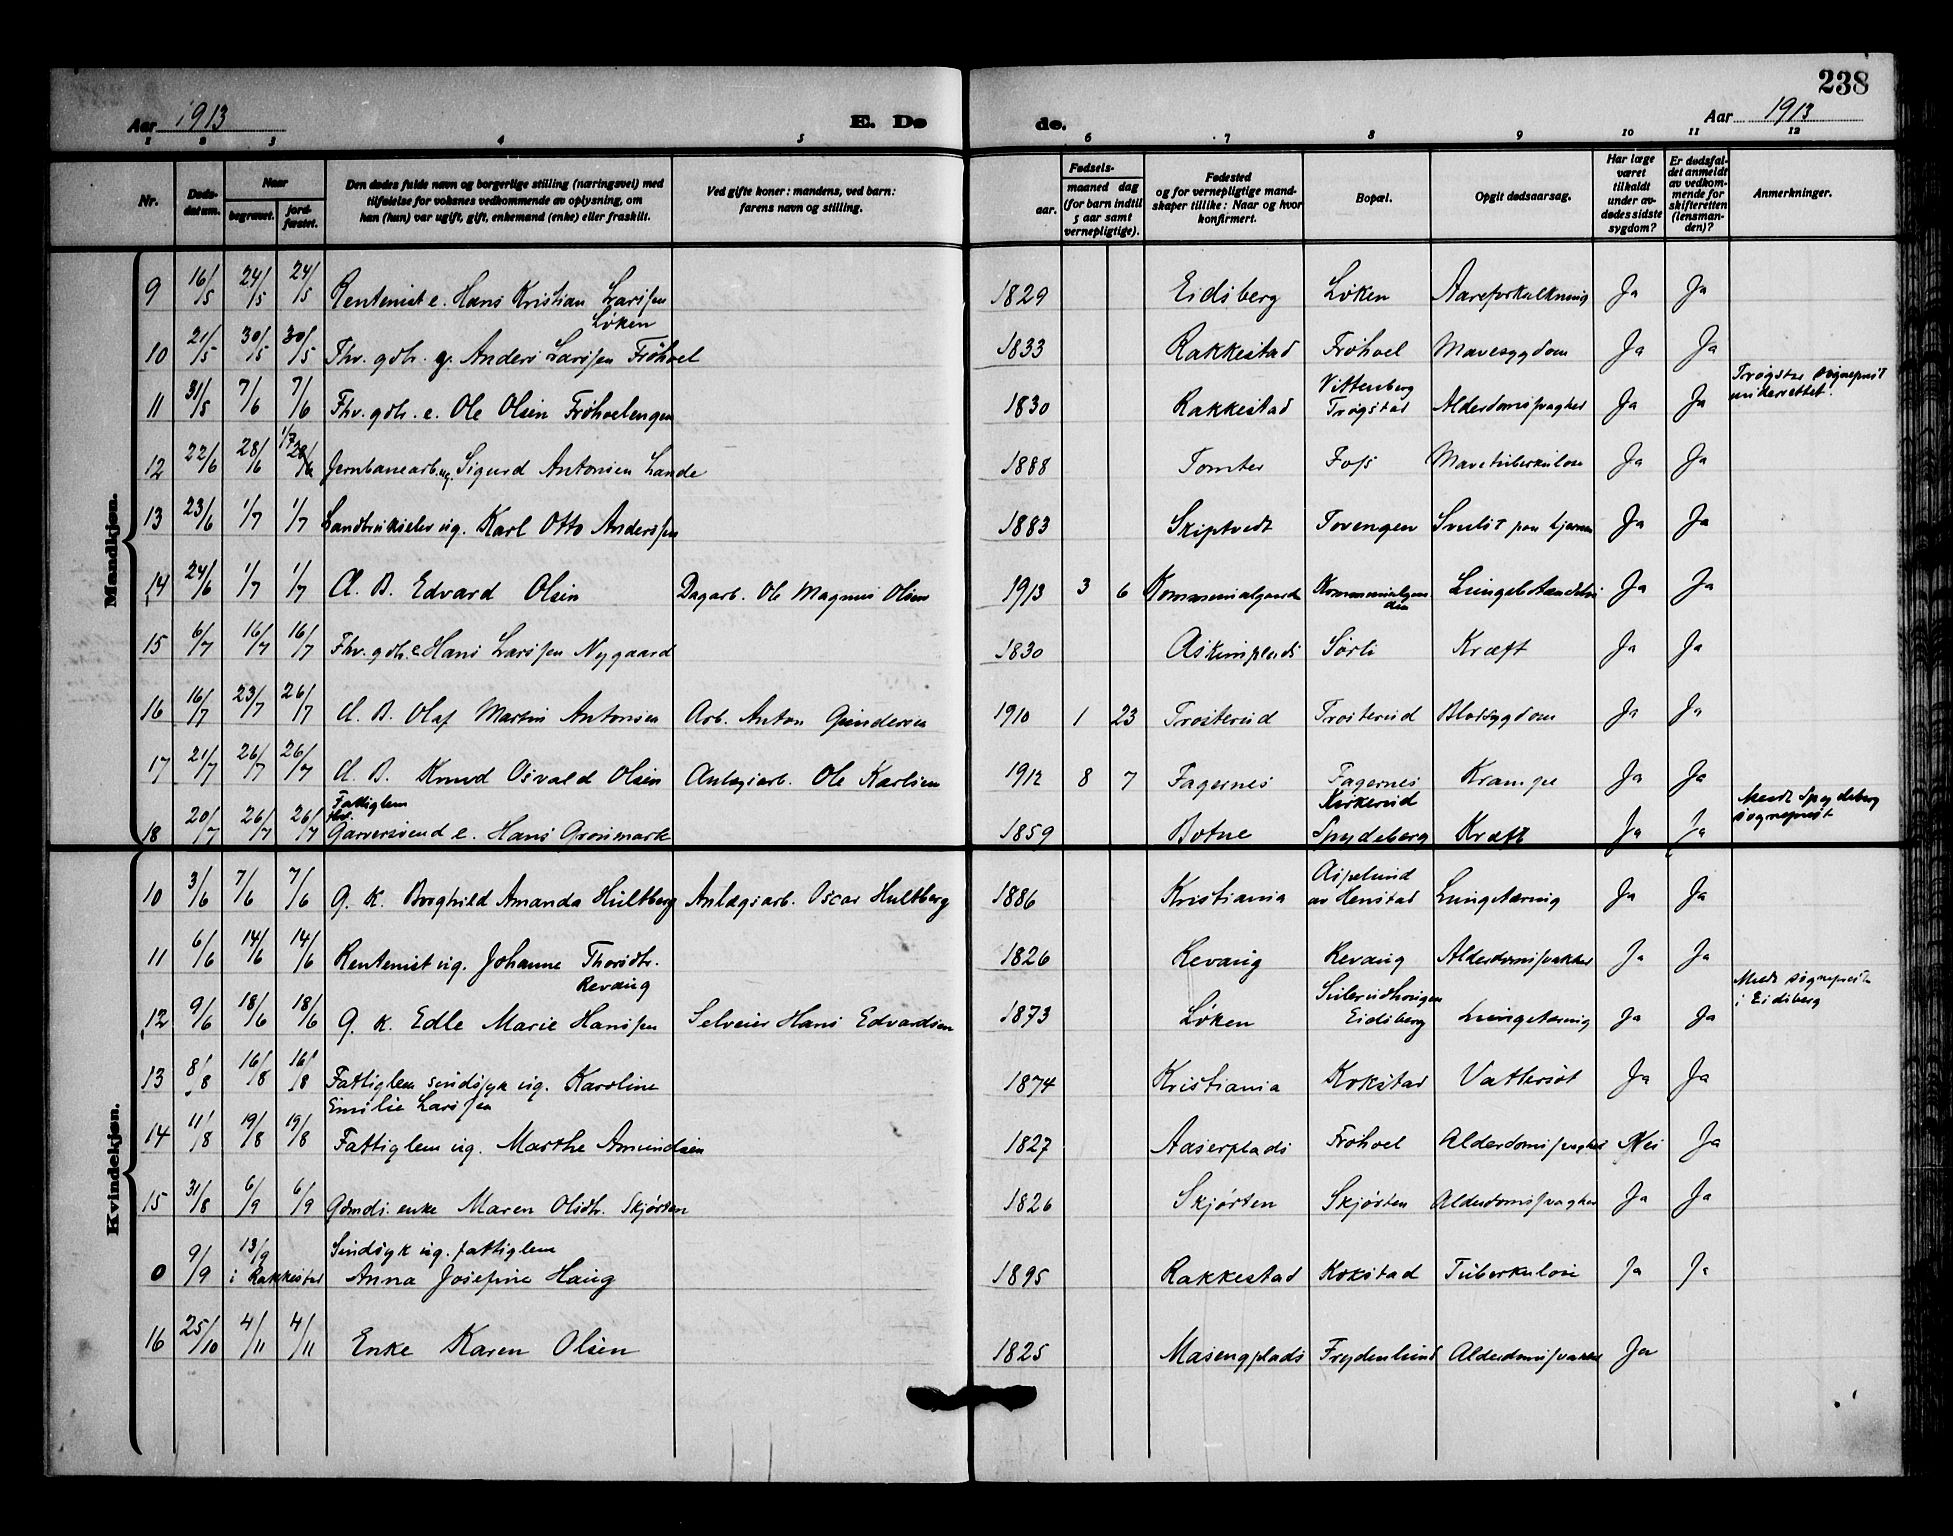 238
Aar 1913
E. Dø
de.
Aar 1913
1 2 3 4 5 6 7 8 9 10 11 12
Nr.
Døds-
datum.
Naar
begravet.
jord-
fæstet.
Den dødes fulde navn og borgerlige stilling (næringsvei) med
tilføielse for voksnes vedkommende av oplysning, om
han (hun) var ugift, gift, enkemand (enke) eller fraskilt.
Ved gifte koner: mandens, ved barn:
farens navn og stilling.
Fødsels-
aar.
maaned dag
(for barn indtil
5 aar samt
vernepligtige).
Fødested
og for vernepligtige mand-
skaper tillike: Naar og hvor
konfirmert.
Bopæl.
Opgit dødsaarsag.
Har læge
været
tilkaldt
under av-
dødes sidste
sygdom?
Er dødsfal-
det anmeldt
av vedkom-
mende for
skifteretten
(lensman-
den)?
Anmerkninger.
Mandkjøn.
9 16/5 24/5 24/5 Rentenist e. Hans Kristian Larssen 1829 Eidsberg Løken Aareforkalkning Ja Ja
Løken
10 21/5 30/5 30/5 Fhv. gdbr. g. Anders Larssen Frøhoel 1833 Rakkestad Frøhoel Mavesygdom Ja Ja
Vittenberg Trøgstad sogneprest
11 31/5 7/6 7/6 Fhv. gdbr. e. Ole Olsen Frøhoelengen 1830 Rakkestad Trøgstad Alderdomssvaghed Ja Ja underrettet.
1/7
12 22/6 28/6 28/6 Jernbanearb. ug. Sigurd Antonsen Lande 1888 Tomter Foss Mavetuberkulose Ja Ja
13 23/6 1/7 1/7 Landbrukselev ug. Karl Otto Anderssen 1883 Skiptvedt Tovengen Svulst paa hjernen Ja Ja
14 24/6 1/7 1/7 d. B. Edvard Olsen Dagarb. Ole Magnus Olsen 1913 3 6 Kommunalgaarden Lungebetændelse Ja Ja
15 6/7 16/7 16/7 Fhv. gdbr. e Hans Larssen Nygaard 1830 Askimplads Sørli Kræft Ja Ja
16 16/7 23/7 26/7 d. B. Olaf Martin Antonsen Arb. Anton Gundersen 1910 1 23 Trosterud Trosterud Blodsygdom Ja Ja
17 21/7 26/7 26/7 d. B. Knud Osvald Olsen Anlægsarb. Ole Karlsen 1912 8 7 Fagernes Fagernes Krampe Ja Ja
Fattiglem Kirkerud Meddt Spydeberg
fhv. sogneprest
18 20/7 26/7 26/7 Garversvend e. Hans Gronmark 1859 Botne Spydeberg Kræft Ja Ja
Kvindekjøn.
Aspelund
10 3/6 7/6 7/6 G. K. Borghild Amanda Hultberg Anlægsarb. Oscar Hultberg 1886 Kristiania av Henstad Lungetæring Ja Ja
11 6/6 14/6 14/6 Rentenist ug. Johanne Thorsdtr. 1826 Revaug Revaug Alderdomssvakhet Ja Ja
Revaug Meddt sogneprest
i Eidsberg
12 9/6 18/6 18/6 G. K. Edle Marie Hanssen Selveier Hans Edvardsen 1873 Løken Eidsberg Lungetæring Ja Ja
13 8/8 16/8 16/8 Fattiglem sindssyk ug. Karoline 1874 Kristiania Kokstad Vattersot Ja Ja
Emilie Larssen
14 11/8 19/8 19/8 Fattiglem ug. Marthe Amundsen 1827 Aaserplads Frøhoel Alderdomssvaghed Nei Ja
15 31/8 6/9 6/9 Gdmds. enke Maren Olsdtr. Skjørten 1826 Skjørten Skjørten Alderdomssvaghed Ja Ja
Sindsyk ug. fattiglem
0 9/9 13/9 i Rakkestad Anna Josefine Haug 1895 Rakkestad Kokstad Tuberkulose Ja Ja
16 25/10 4/11 4/11 Enke Karen Olsen 1825 Masengplads Frydenlund Alderdomssvakhed Ja